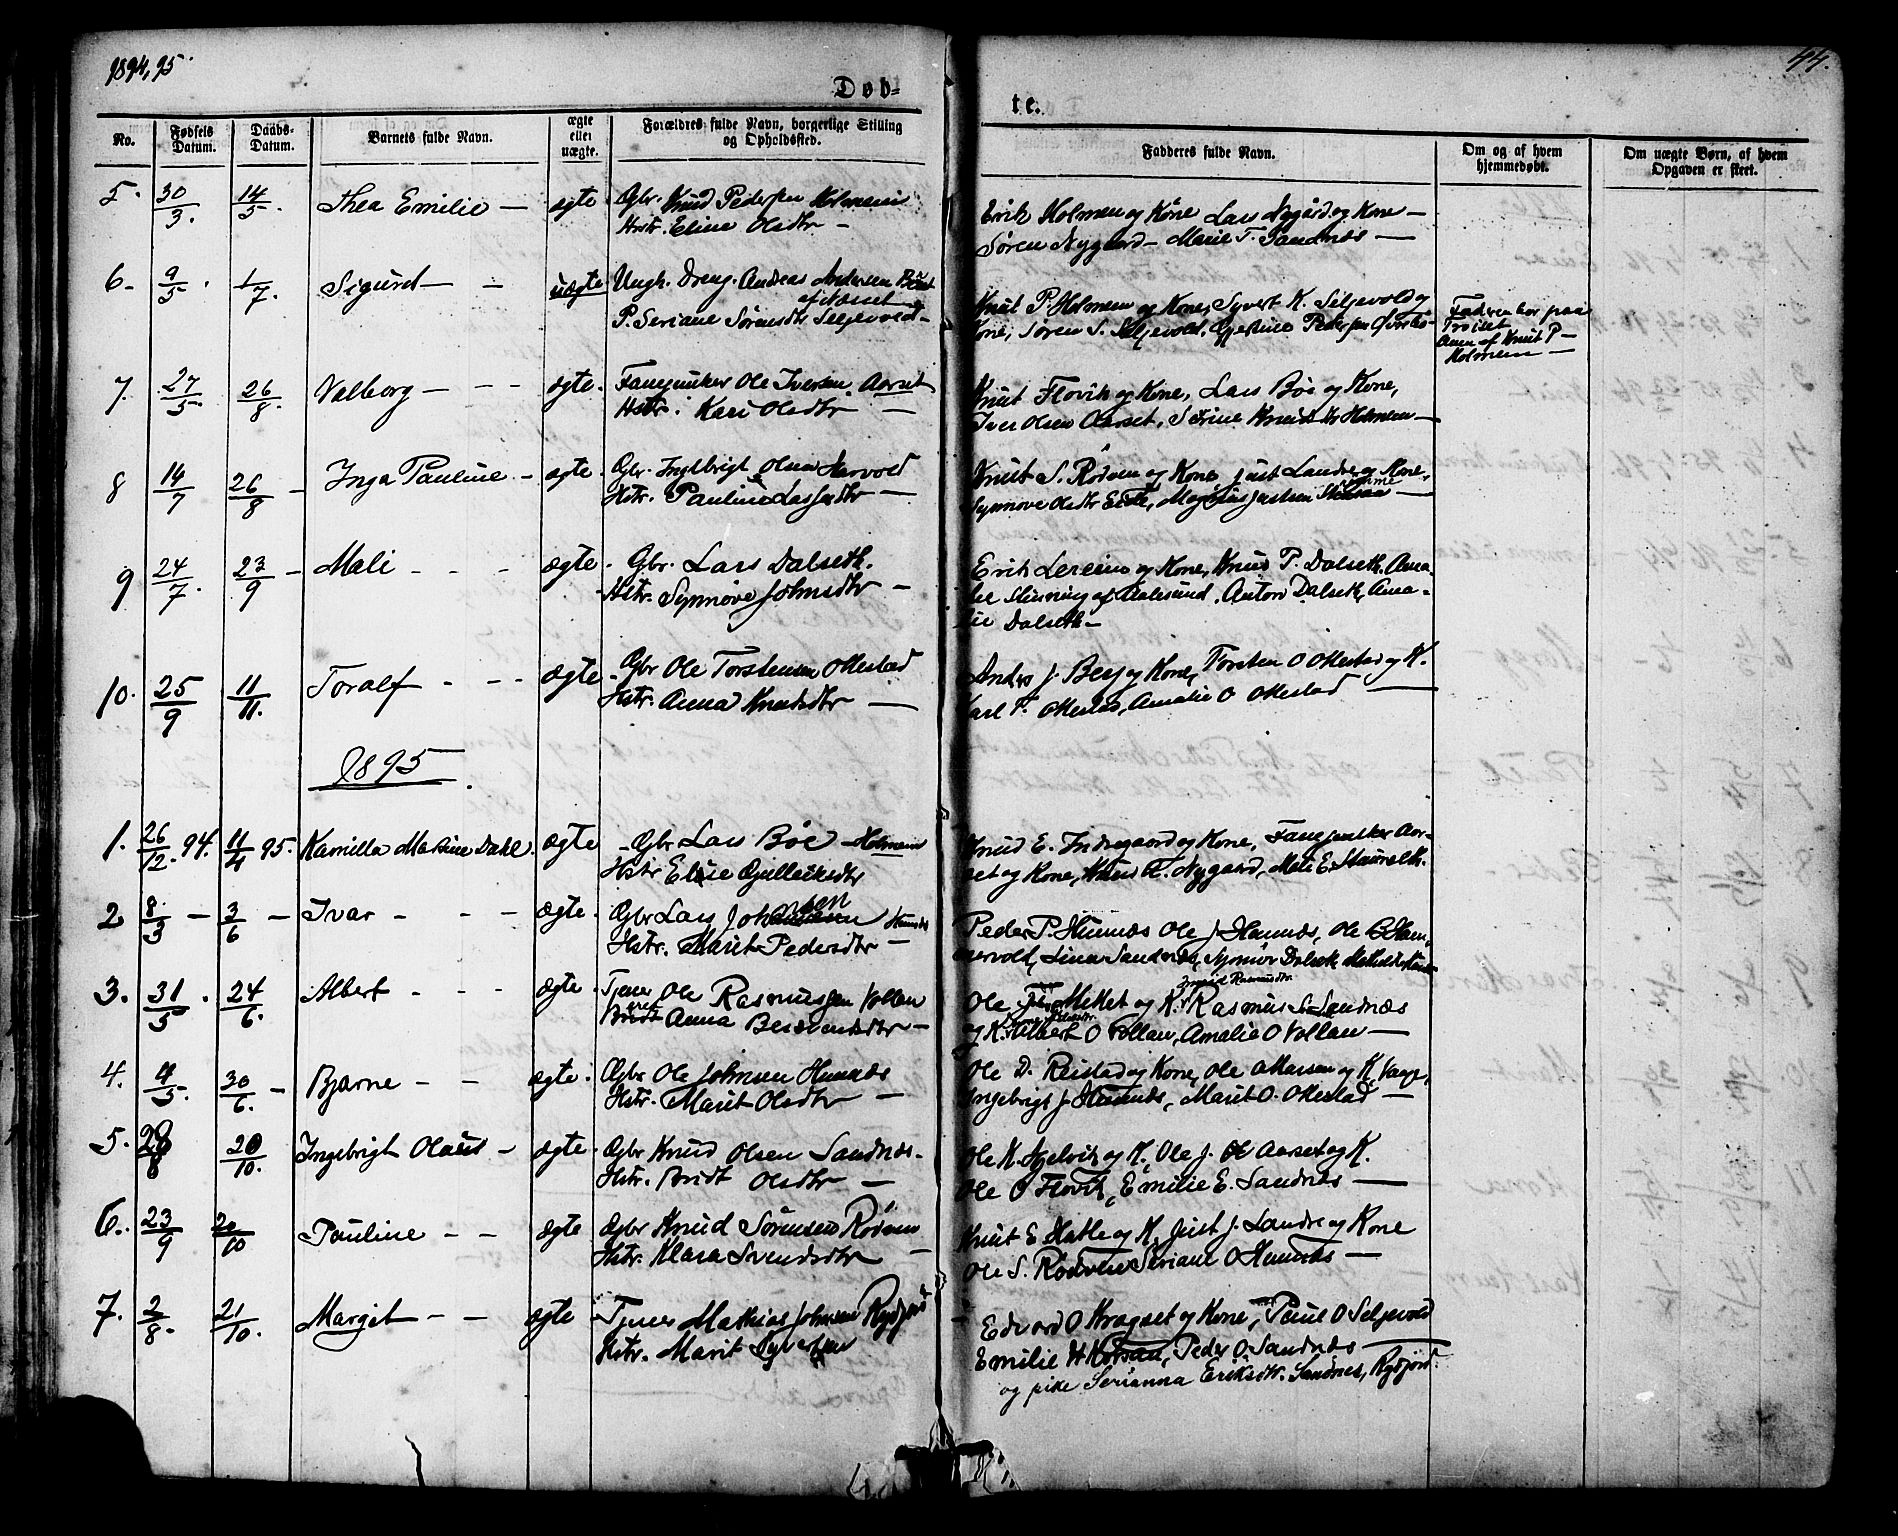 1894, 95.
44.
Døb-
te.
No.
Fødsels Datum.
Daabs-Datum.
Barnets fulde Navn.
ægte eller uægte.
Forældres fulde Navn, borgerlige Stilling og Opholdssted.
Fadderes fulde Navn.
Om og af hvem hjemmedøbt.
Om uægte Børn, af hvem Opgaven er skeet.
5. 30/3. 14/5. Thea Emilie — ægte Gbr. Knud Pedersen Holmem
Hstr. Eline Olsdtr —
Erik Holmen og Kone Lars Nygård og Kone —
Søren Nygaard — Marie T. Sandnæs —
6. 9/5. 1/7. Sigurd — — uægte Ungk. Dreng. Andreas Andersen
af Næsset
P. Seriane Sørensdtr Seljevold —
Knut P. Holmem og Kone, Syvert K. Seljevold og
Kone, Søren S. Seljevold, Gjertine Pedersen
Faderen bor paa
Knut P —
Holmem —
7. 27/5. 26/8. Valborg — — — ægte. Fanejunker Ole Iversen Aarset
Hstr. Kari Olsdtr —
Knut Flovik og Kone, Lars Bøe og Kone,
Iver Olsen Aarset, Serine Knudsdtr Holmem —
8 14/7 26/8 — Inga Pauline — ægte. Gbr. Ingebrigt Olsen Harvold
Hstr. Pauline Larsdtr —
Knut S. Rødven og Kone, Just Landre og Kone,
Synnøve Olsdtr Eide,
9 24/7 23/9 — Mali — — — ægte. Gbr. Lars Dalseth.
Hstr. Synnøve Johnsdtr —
Erik Lereim og Kone, Knud P. Dalseth. Ama-
lie af Aalesund. Anton Dalseth, Ama-
lie Dalseth —
10. 25/9 11/11. Toralf — — — ægte. Gbr Ole Torstensen Ottestad
Hstr. Anna Knudsdtr —
Anders J. Berg og Kone, Torsten O Ottestad og K.
Karl T. Ottestad, Amalie O Ottestad —
1895.
1. 26/12. 94. 11/4 95. Kamilla Martine Dahl. ægte — Gbr Lars Bøe — Holmem
Hstr Elise Gjulleiksdtr
Knud E. Indregaard og Kone, Fanejunker Aar-
set og Kone, Knud L. Nygaard, Mali E.
2 8/3 — 3/6 — Ivar — — — ægte. Gbr Lars Johansen Hunnæs
Hstr. Marit Pedersdtr —
Peder P Hunnæs Ole J Hunnæs, Ole
Lina Sandnæs, Synnøv Dalseth
3. 31/5. 24/6. Albert — — — ægte. Tjener Ole Rasmussen Vollan
Anna
Ingrid Rasmusdtr.
Ole Mittet og K. Rasmus L. Sandnæs
og K. Albert O Vollan, Amalie O Vollan —
4. 4/5. 30/6. — Bjarne — — ægte. Gbr Ole Johnsen Hunnæs
Hstr. Marit Olsdtr —
Ole D. Reistad og Kone, Ole
Ingebrigt J Hunnæs, Marit O. Ottestad —
5. 28/8 20/10. Ingebrigt Olaus — ægte. Gbr Knud Olsen Sandnæs.
Hstr. Bridt Olsdtr —
Ole K. og K, Ole J. Aarset og K.
Ole O Flovik, Emilie E. Sandnæs —
6. 23/9 20/10 Pauline — — ægte Gbr Knud Sørensen Rødven
Hstr. Klara Svendsdtr —
Knut E Hatle og K, Just J. Landre og Kone
Ole S. Rødven Seriane O Hunnæs —
7. 2/8. 21/10. Margit — — ægte Tjener Mathias Johnsen Rydjord
Hstr. Marit Syversen
Edvard O Kragset og Kone, Paul O Seljevold
Emilie H Peder O. Sandnæs —
og pike Serianna Eriksdtr. Sandnes, Rydjord.